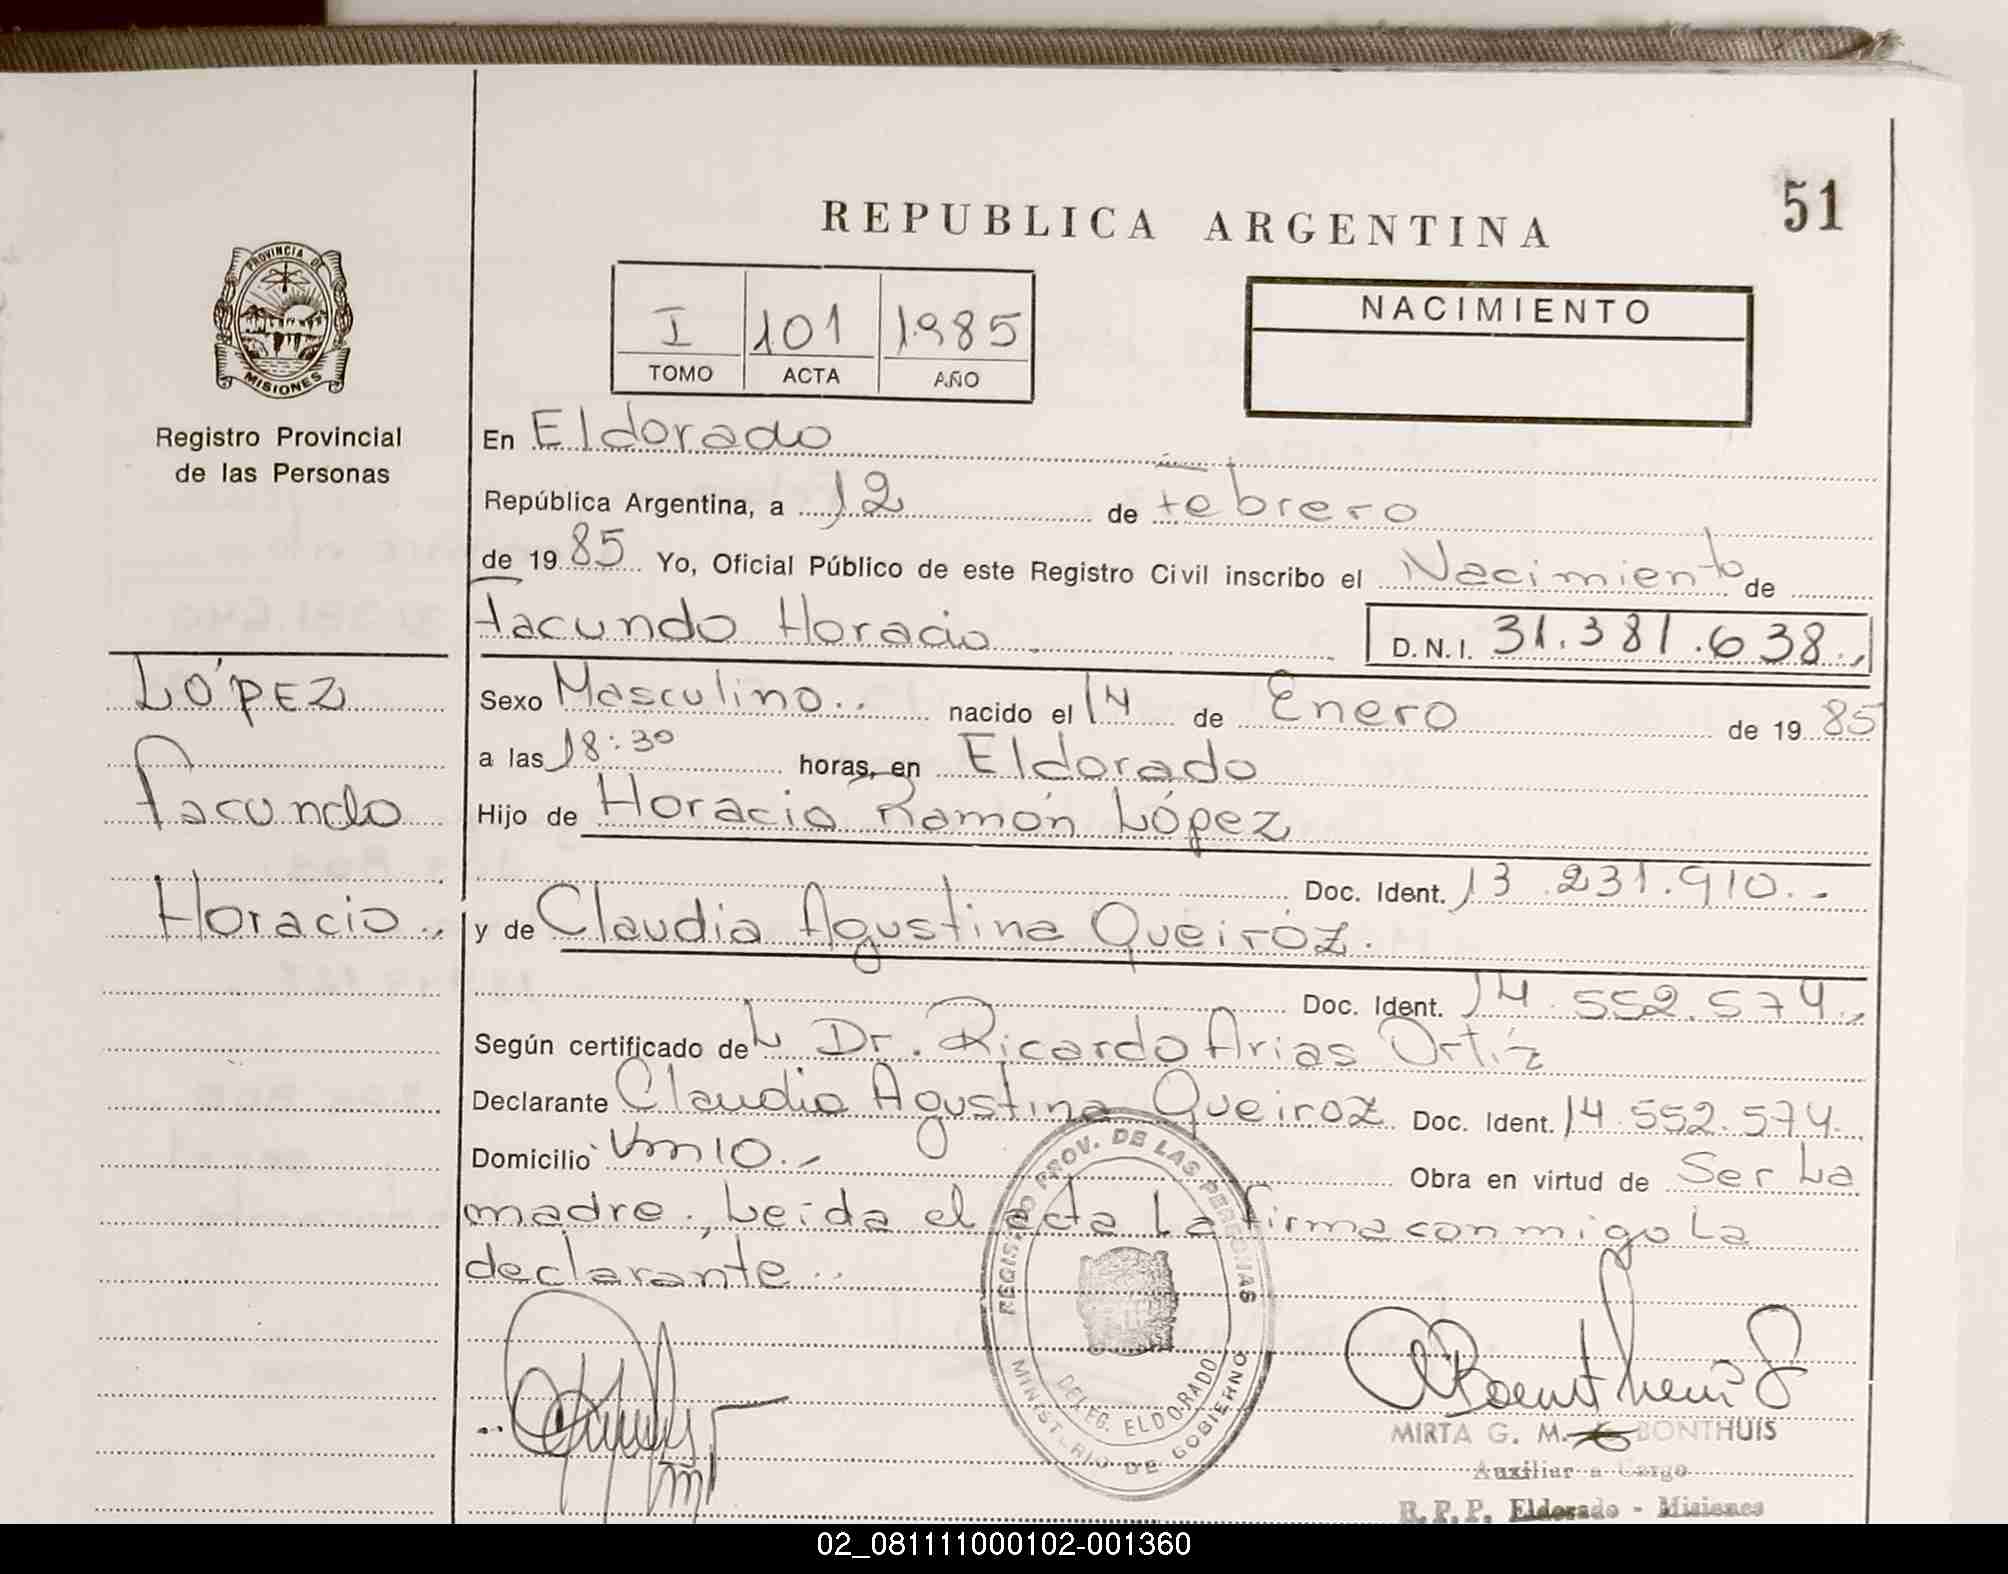 51
REPUBLICA ARGENTINA
PROVINCIA DE
MISIONES
Registro Provincial
de las Personas
I 101 1985
TOMO ACTA AÑO
NACIMIENTO
En Eldorado
República Argentina, a 12 de Febrero
de 1985 Yo, Oficial Público de este Registro Civil inscribo el Nacimiento de
Facundo Horacio D.N.I. 31.381.638.,
LÓPEZ
Facundo
Horacio.,
Sexo Masculino.. nacido el 14 de Enero de 1985
a las 18:30 horas, en Eldorado
Hijo de Horacio Ramón López
Doc. Ident. 13.231.910..
y de Claudia Agustina Queiróz.
Doc. Ident. 14.552.574.,
Según certificado del Dr. Ricardo Arias Ortíz
Declarante Claudia Agustina Queiroz Doc. Ident. 14.552.574.
Domicilio Km 10., Obra en virtud de Ser La
madre., Leida el acta La firma conmigo La
declarante..
REGISTRO PROV. DE LAS PERSONAS
DELEG. ELDORADO
MINISTERIO DE GOBIERNO
MIRTA G. M. BONTHUIS
Auxiliar a Cargo
R.P.P. Eldorado - Misiones
02_081111000102-001360